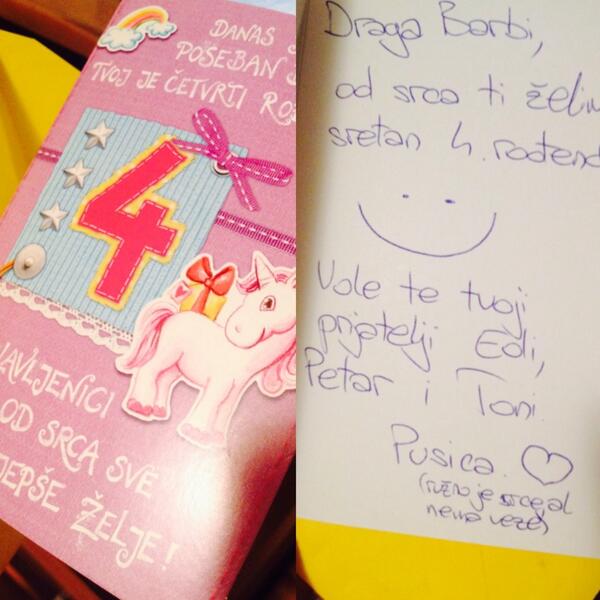 DANAS
POŠEBAN
TVOJ JE ČETVRTI
4
OD SRCA SVE
ŽELJE!
Draga Barbi,
od srca ti želim
sretan 4. rođend
Vole te tvoji
prijatelji Edi,
Petar i Toni.
Pusica ♡
(ružno je srce al
nema veze)